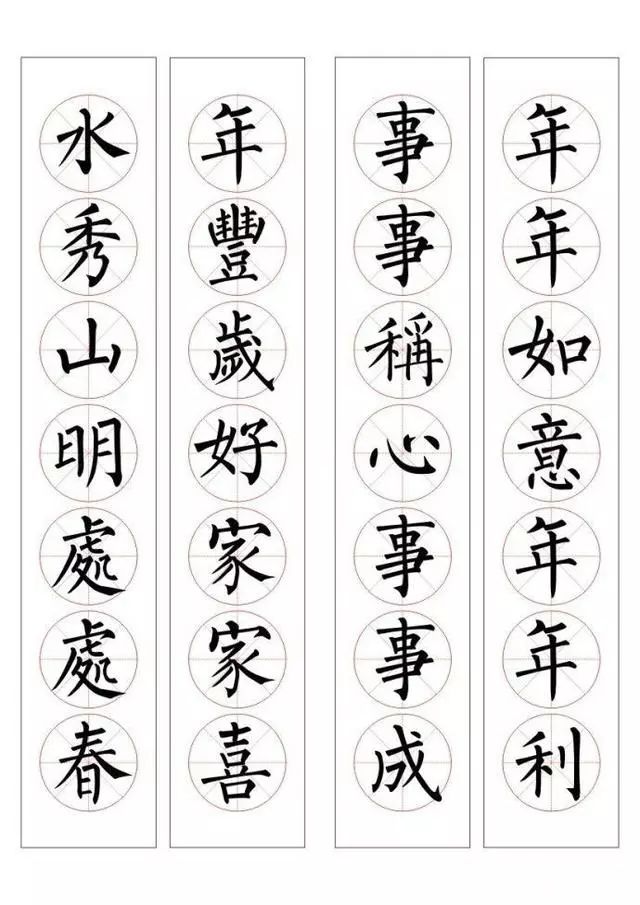 年年如意年年利
事事稱心事事成
年豐歲好家家喜
水秀山明處處春